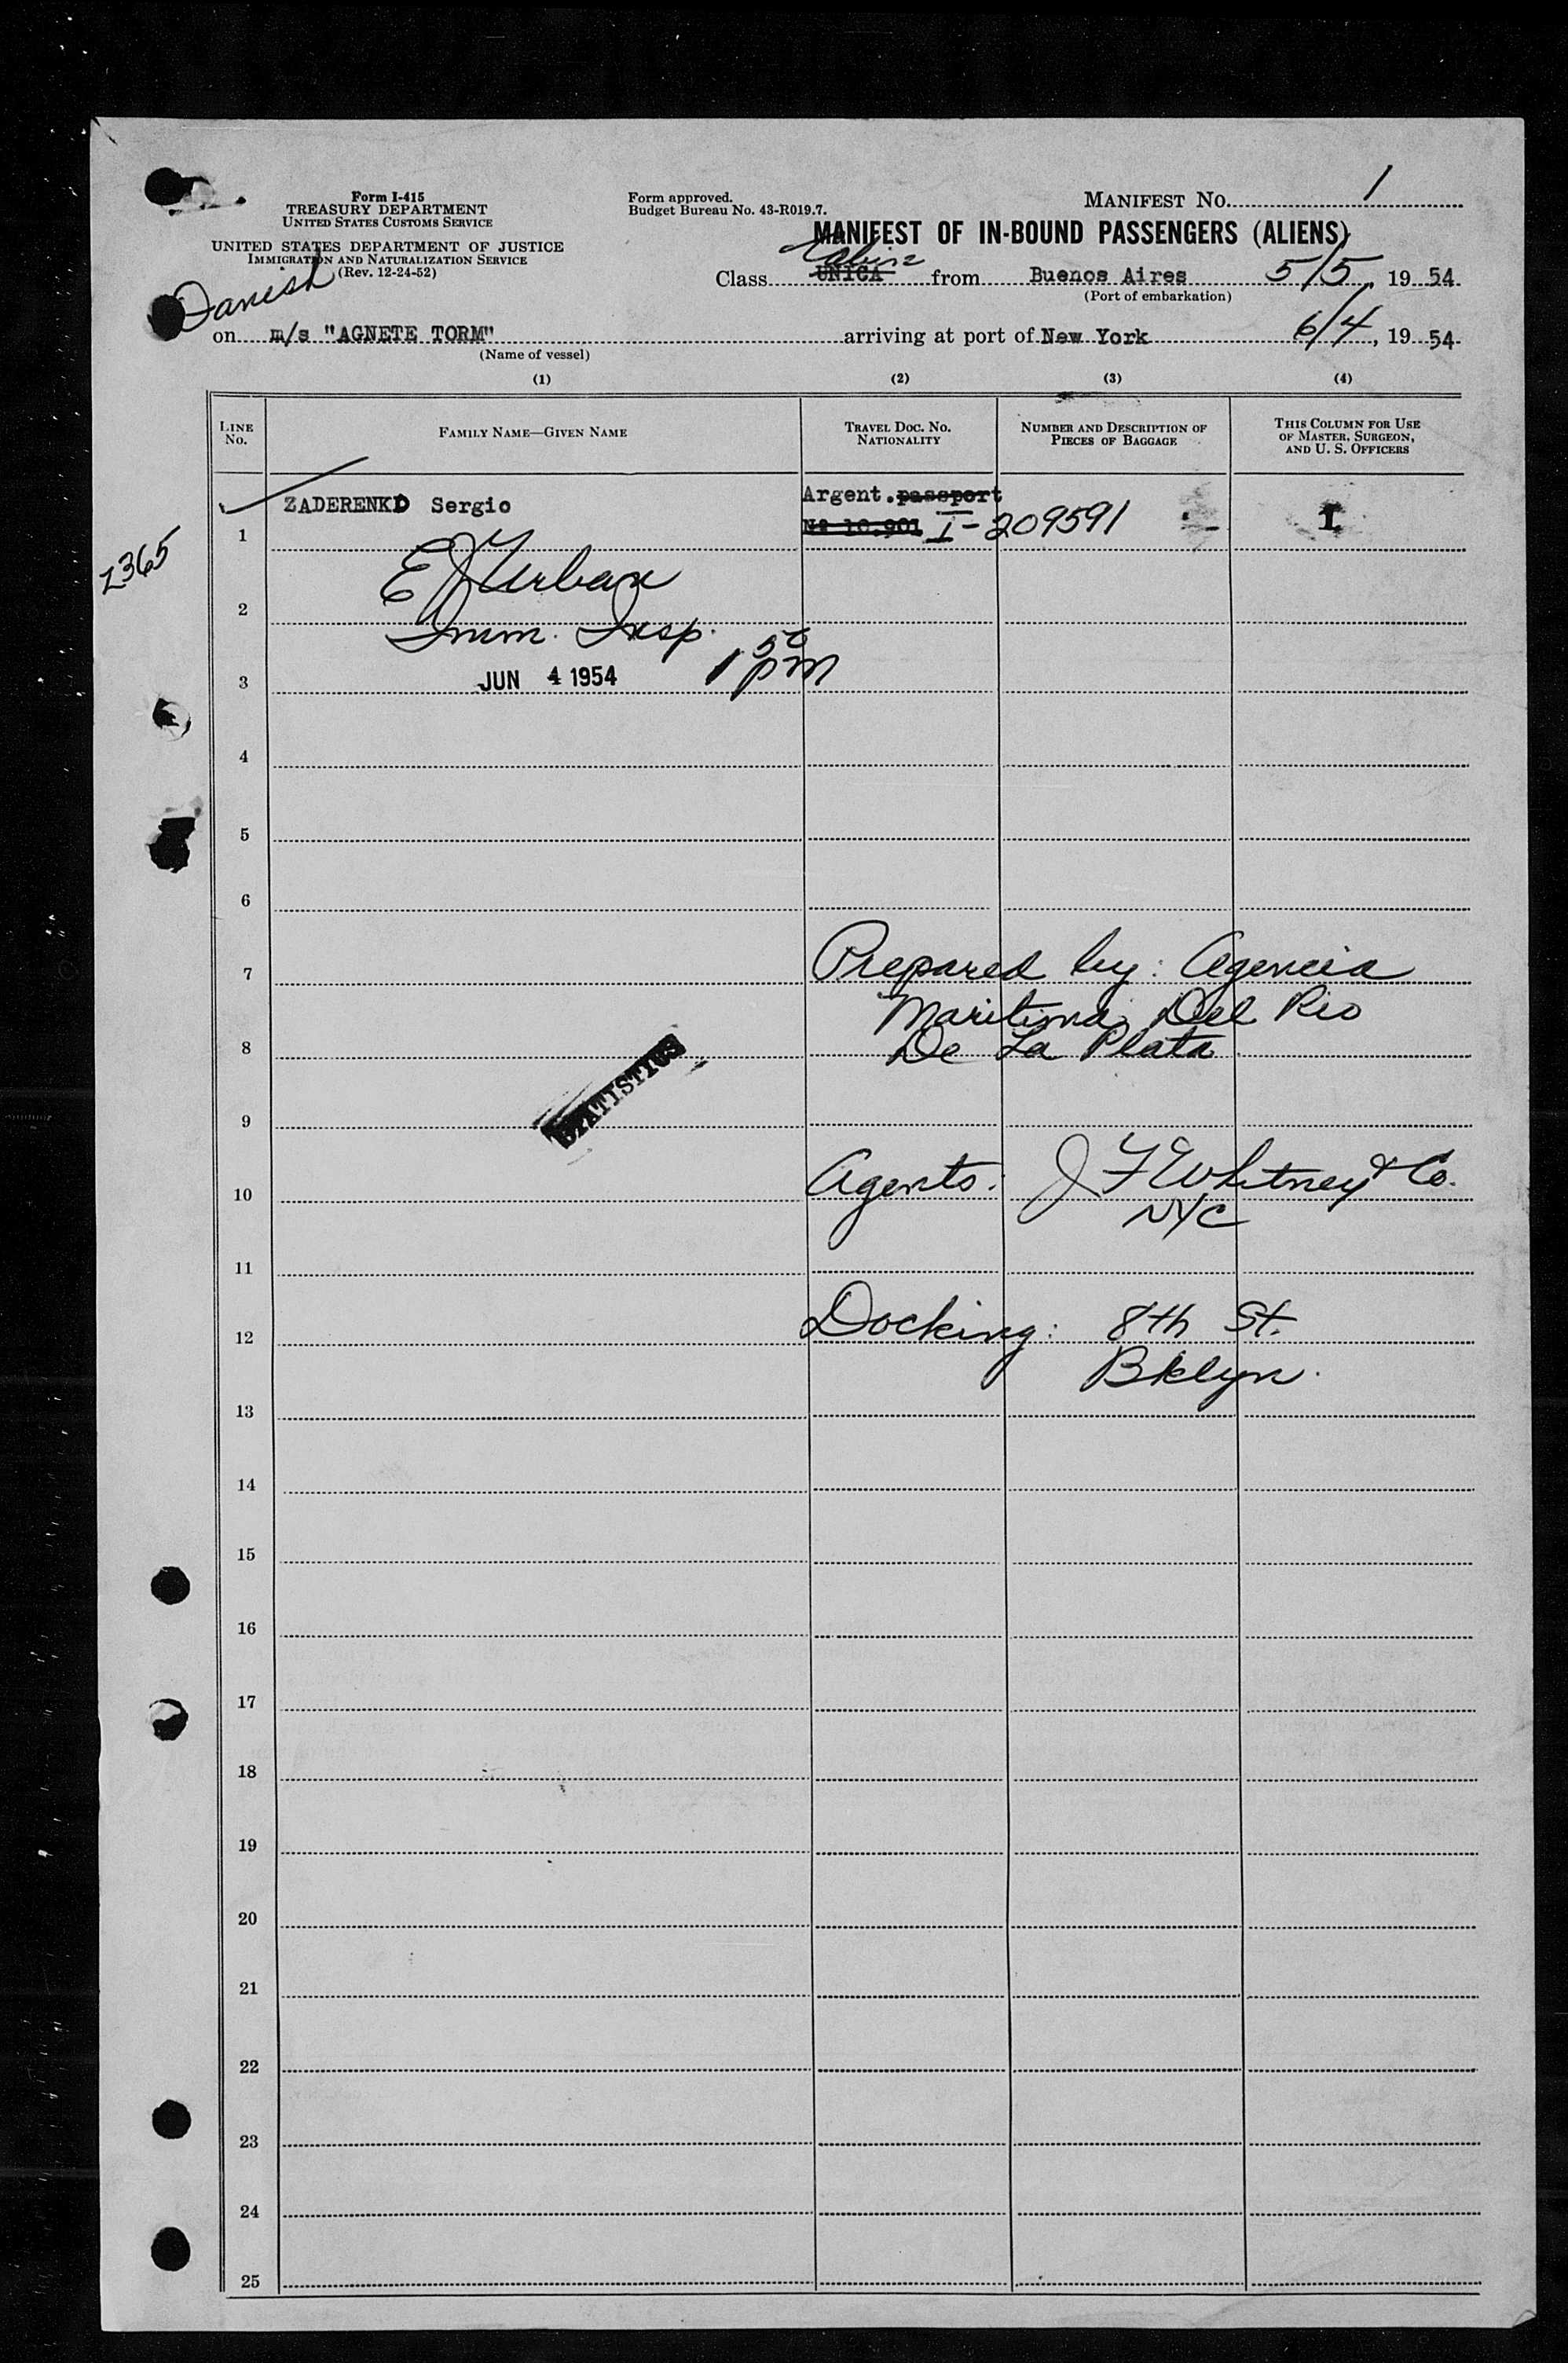 Form I-415
TREASURY DEPARTMENT
UNITED STATES CUSTOMS SERVICE
UNITED STATES DEPARTMENT OF JUSTICE
IMMIGRATION AND NATURALIZATION SERVICE
(Rev. 12-24-52)
Form approved.
Budget Bureau No. 43-R019.7.
MANIFEST NO. 1
MANIFEST OF IN-BOUND PASSENGERS (ALIENS)
Cabin
Class UNICA from Buenos Aires 5/5, 19 54
(Port of embarkation)
Danish
on m/s "AGNETE TORM" arriving at port of New York 6/4, 19 54
(Name of vessel)
(1) (2) (3) (4)
LINE No. FAMILY NAME—GIVEN NAME TRAVEL DOC. NO. NATIONALITY NUMBER AND DESCRIPTION OF PIECES OF BAGGAGE THIS COLUMN FOR USE OF MASTER, SURGEON, AND U. S. OFFICERS
ZADERENKO Sergio Argent. passport
1 Nº 10.901 I-209591 I
Z365
E J Urban
2
Imm. Insp.
3 JUN 4 1954 1 50 pm
4
5
6
7 Prepared by: Agencia
Maritima Del Rio
8 De La Plata
STATISTICS
9
10 Agents: J F Whitney & Co.
NYC
11
12 Docking: 8th St.
Bklyn.
13
14
15
16
17
18
19
20
21
22
23
24
25